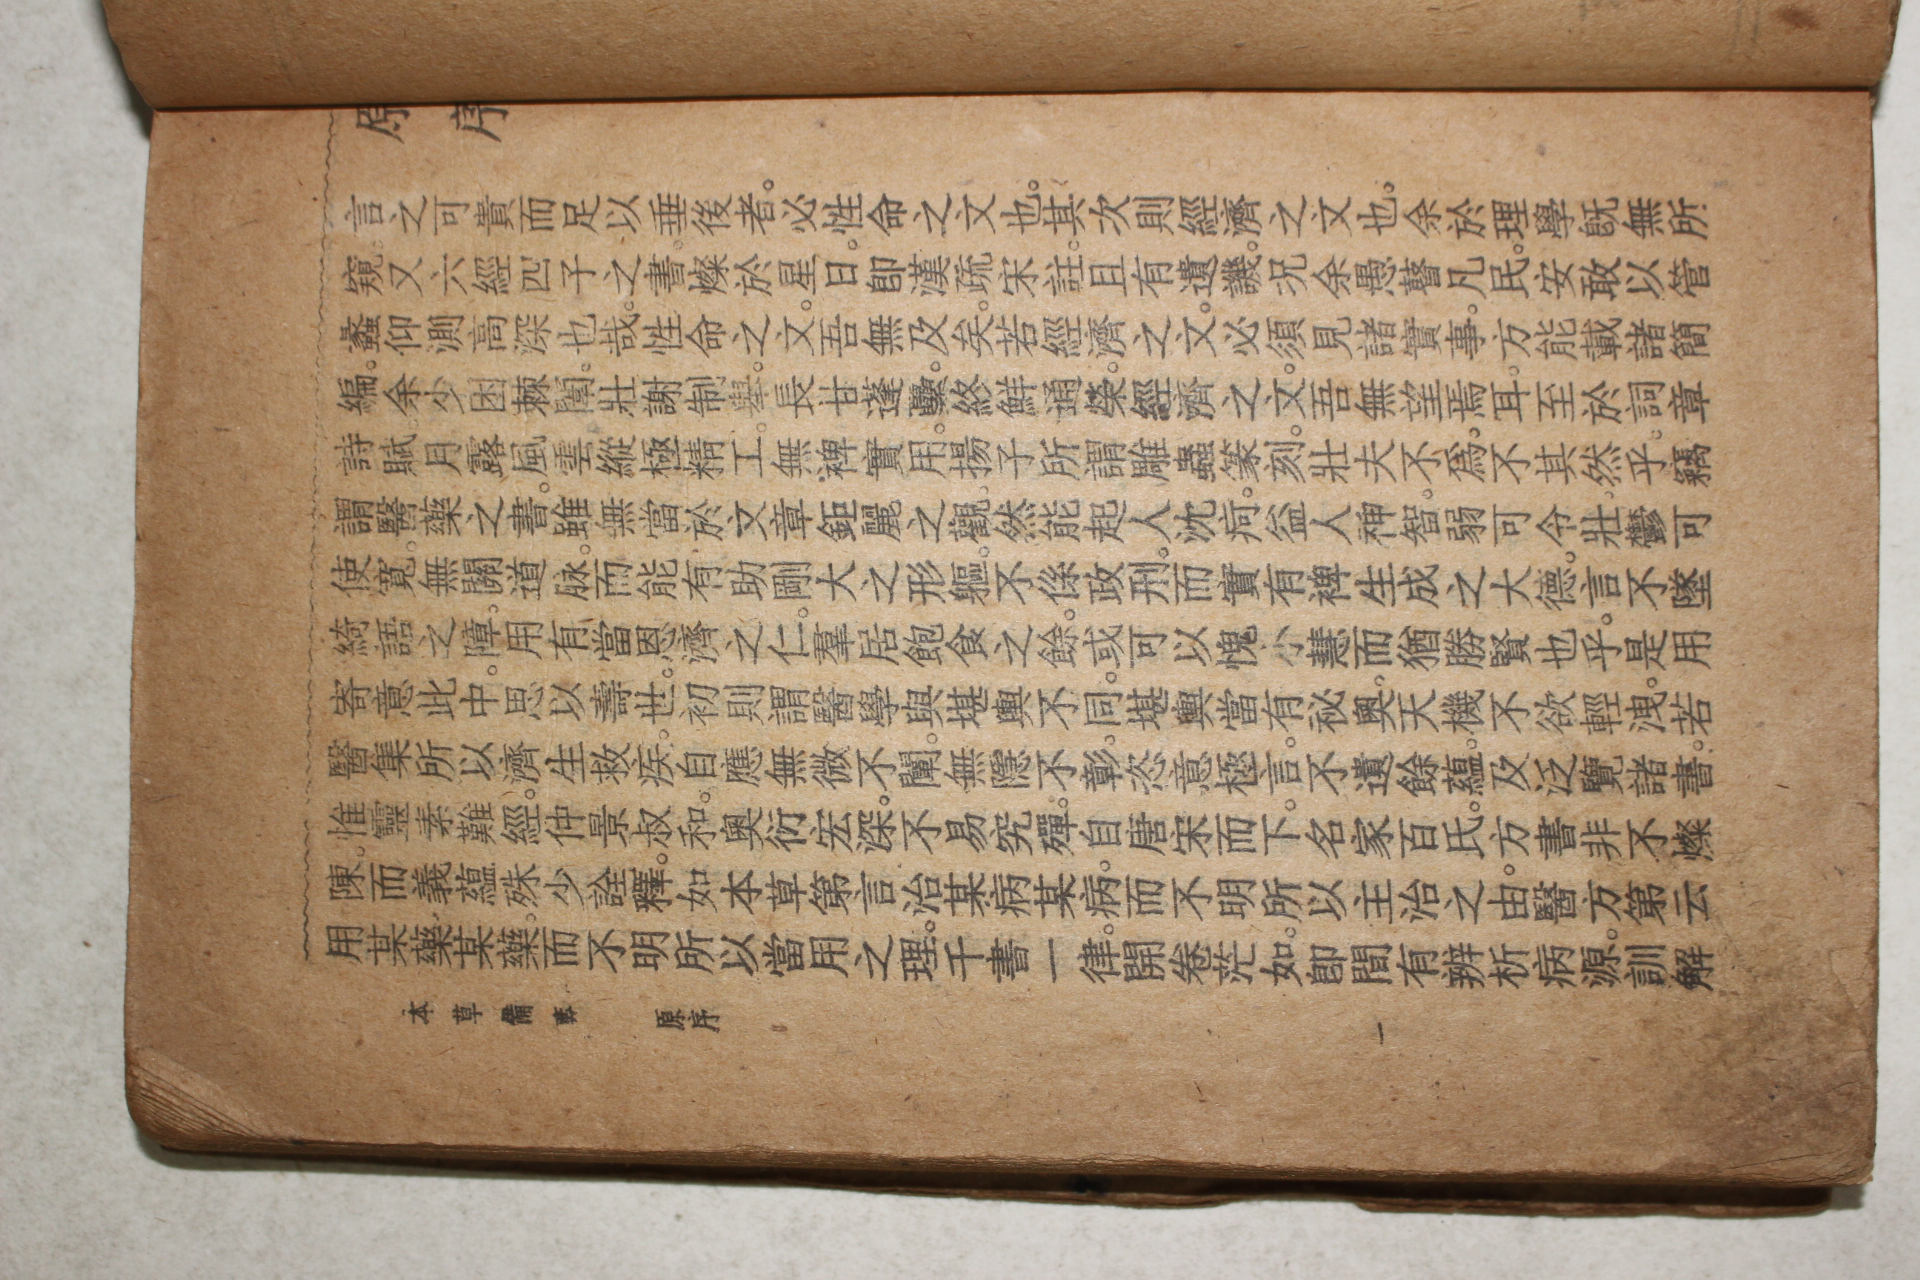 原序
言之可貴而足以垂後者。必性命之文也。其次則經濟之文也。余於理學旣無所
窺。又六經四子之書。燦於星日。卽漢疏宋註。且有遺譏。況余愚瞽凡民。安敢以管
蠡仰測高深也哉。性命之文。吾無及矣。若經濟之文。必須見諸實事。方能載諸簡
編。余少困棘闈。壯謝制舉。長甘蓬藋。終鮮通榮。經濟之文。吾無望焉耳。至於詞章
詩賦。月露風雲。縱極精工。無裨實用。揚子所謂雕蟲篆刻。壯夫不爲。不其然乎。竊
謂醫藥之書。雖無當於文章鉅麗之觀。然能起人沈疴。益人神智。弱可令壯。鬱可
使寬。無關道脉。而能有助剛大之形軀。不係政刑。而實有裨生成之大德。言不墜
綺語之障。用有當恩濟之仁。羣居飽食之餘。或可以愧小慧而猶勝賢也乎。是用
寄意此中。思以壽世。初則謂醫學與堪輿不同。堪輿當有祕奧。天機不欲輕洩。若
醫集所以濟生救疾。自應無微不闡。無隱不彰。恣意極言。不遺餘蘊。及泛覽諸書。
惟靈素難經。仲景叔和。奧衍宏深。不易究殫。自唐宋而下。名家百氏。方書非不燦
陳。而義蘊殊少詮釋。如本草第言治某病某病。而不明所以主治之由。醫方第云
用某藥某藥。而不明所以當用之理。千書一律。開卷茫如。卽間有辨析病源。訓解
本草備要　原序　一